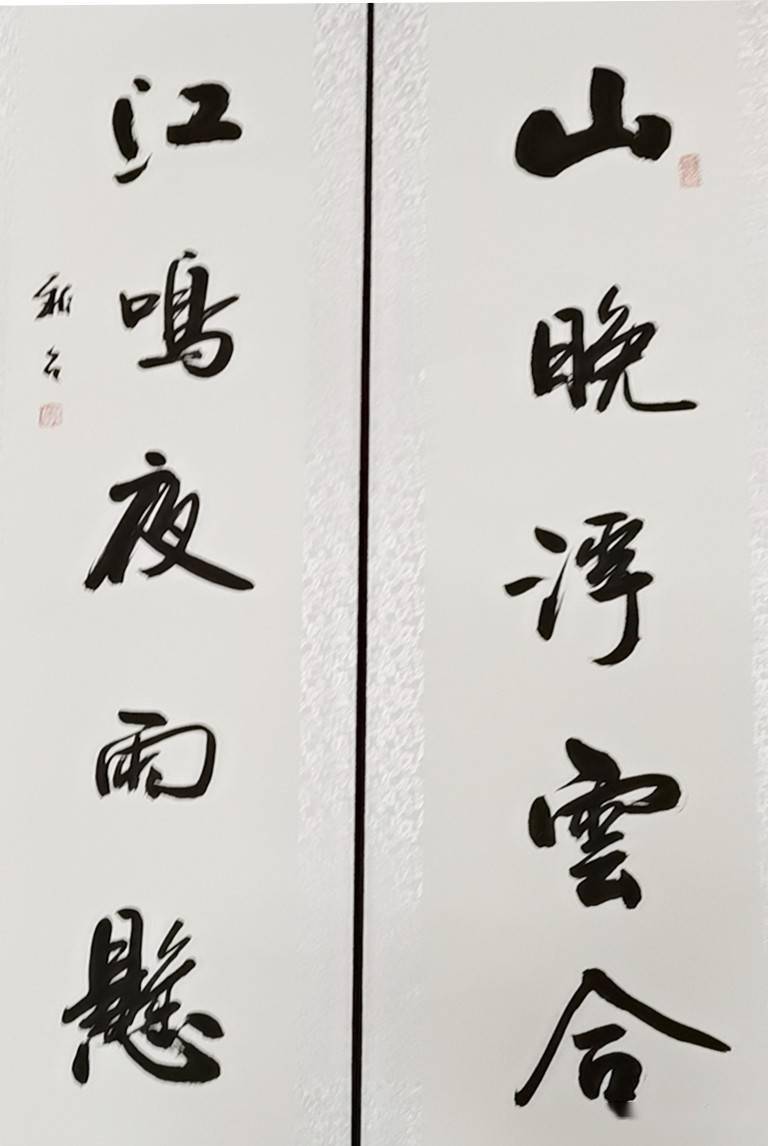 山晚浮雲合
江鳴夜雨懸